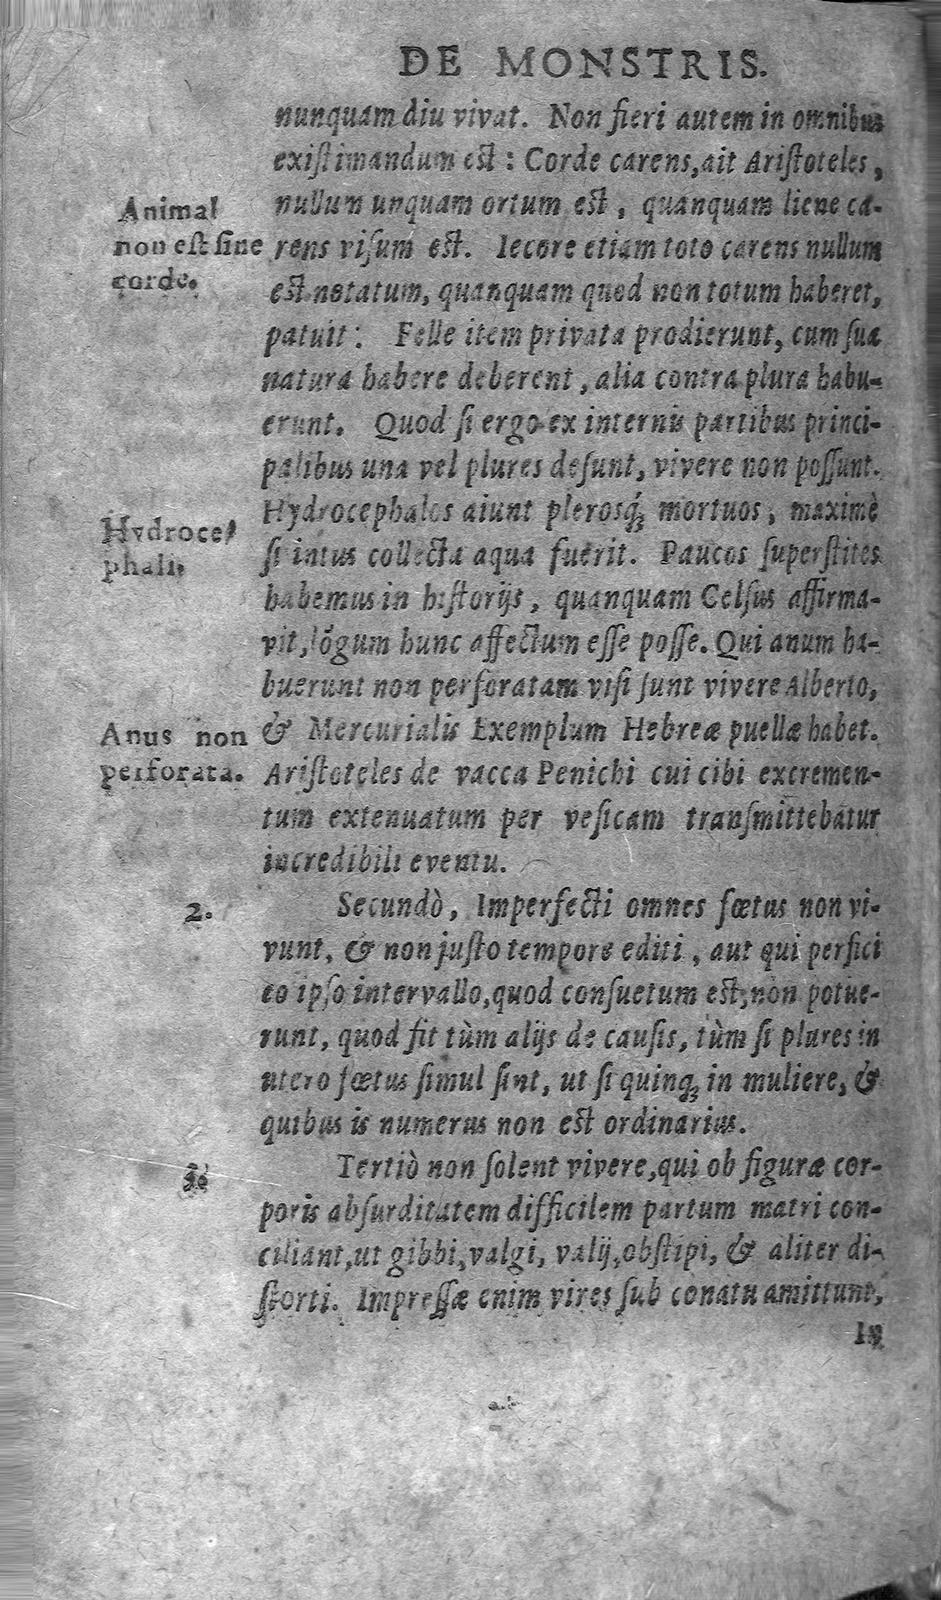 DE MONSTRIS.
nunquam diu vivat. Non fieri autem in omnibus
existimandum est : Corde carens, ait Aristoteles,
nullum unquam ortum est, quanquam liene ca-
rens visum est. Iecore etiam toto carens nullum
est notatum, quanquam quod non totum haberet,
patuit : Felle item privata prodierunt, cum sua
natura habere deberent, alia contra plura habu-
erunt. Quod si ergo ex internis partibus princi-
palibus una vel plures desunt, vivere non possunt.
Hydrocephalos aiunt plerosq́; mortuos, maximè
si intus collecta aqua fuerit. Paucos superstites
habemus in historijs, quanquam Celsus affirma-
vit, lõgum hunc affectum esse posse. Qui anum ha-
buerunt non perforatam visi sunt vivere Alberto,
& Mercurialis Exemplum Hebreæ puellæ habet.
Aristoteles de vacca Penichi cui cibi excremen-
tum extenuatum per vesicam transmittebatur
incredibili eventu.
Secundò, Imperfecti omnes fœtus non vi-
vunt, & non justo tempore editi, aut qui perfici
eo ipso intervallo, quod consuetum est, non potue-
runt, quod fit tùm alijs de causis, tùm si plures in
utero fœtus simul sint, ut si quinq; in muliere, &
quibus is numerus non est ordinarius.
Tertiò non solent vivere, qui ob figuræ cor-
poris absurditatem difficilem partum matri con-
ciliant, ut gibbi, valgi, valij, obstipi, & aliter di-
storti. Impressæ enim vires sub conatu amittunt,
Animal
non est sine
corde.
Hydroce-
phali.
Anus non
perforata.
2.